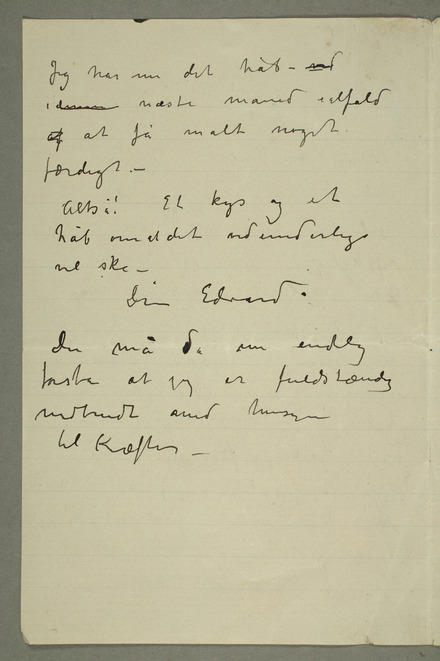 Jeg har nu det håb –
i næste maned ialfald
at få malt noget
færdigt. –
Altså! Et kys og et
håb om at det vidunderlige
vil ske –
Din Edvard.
Du må da nu endelig
forstå at jeg er fuldstændig
nedbrudt med hensyn
til Kræfter –